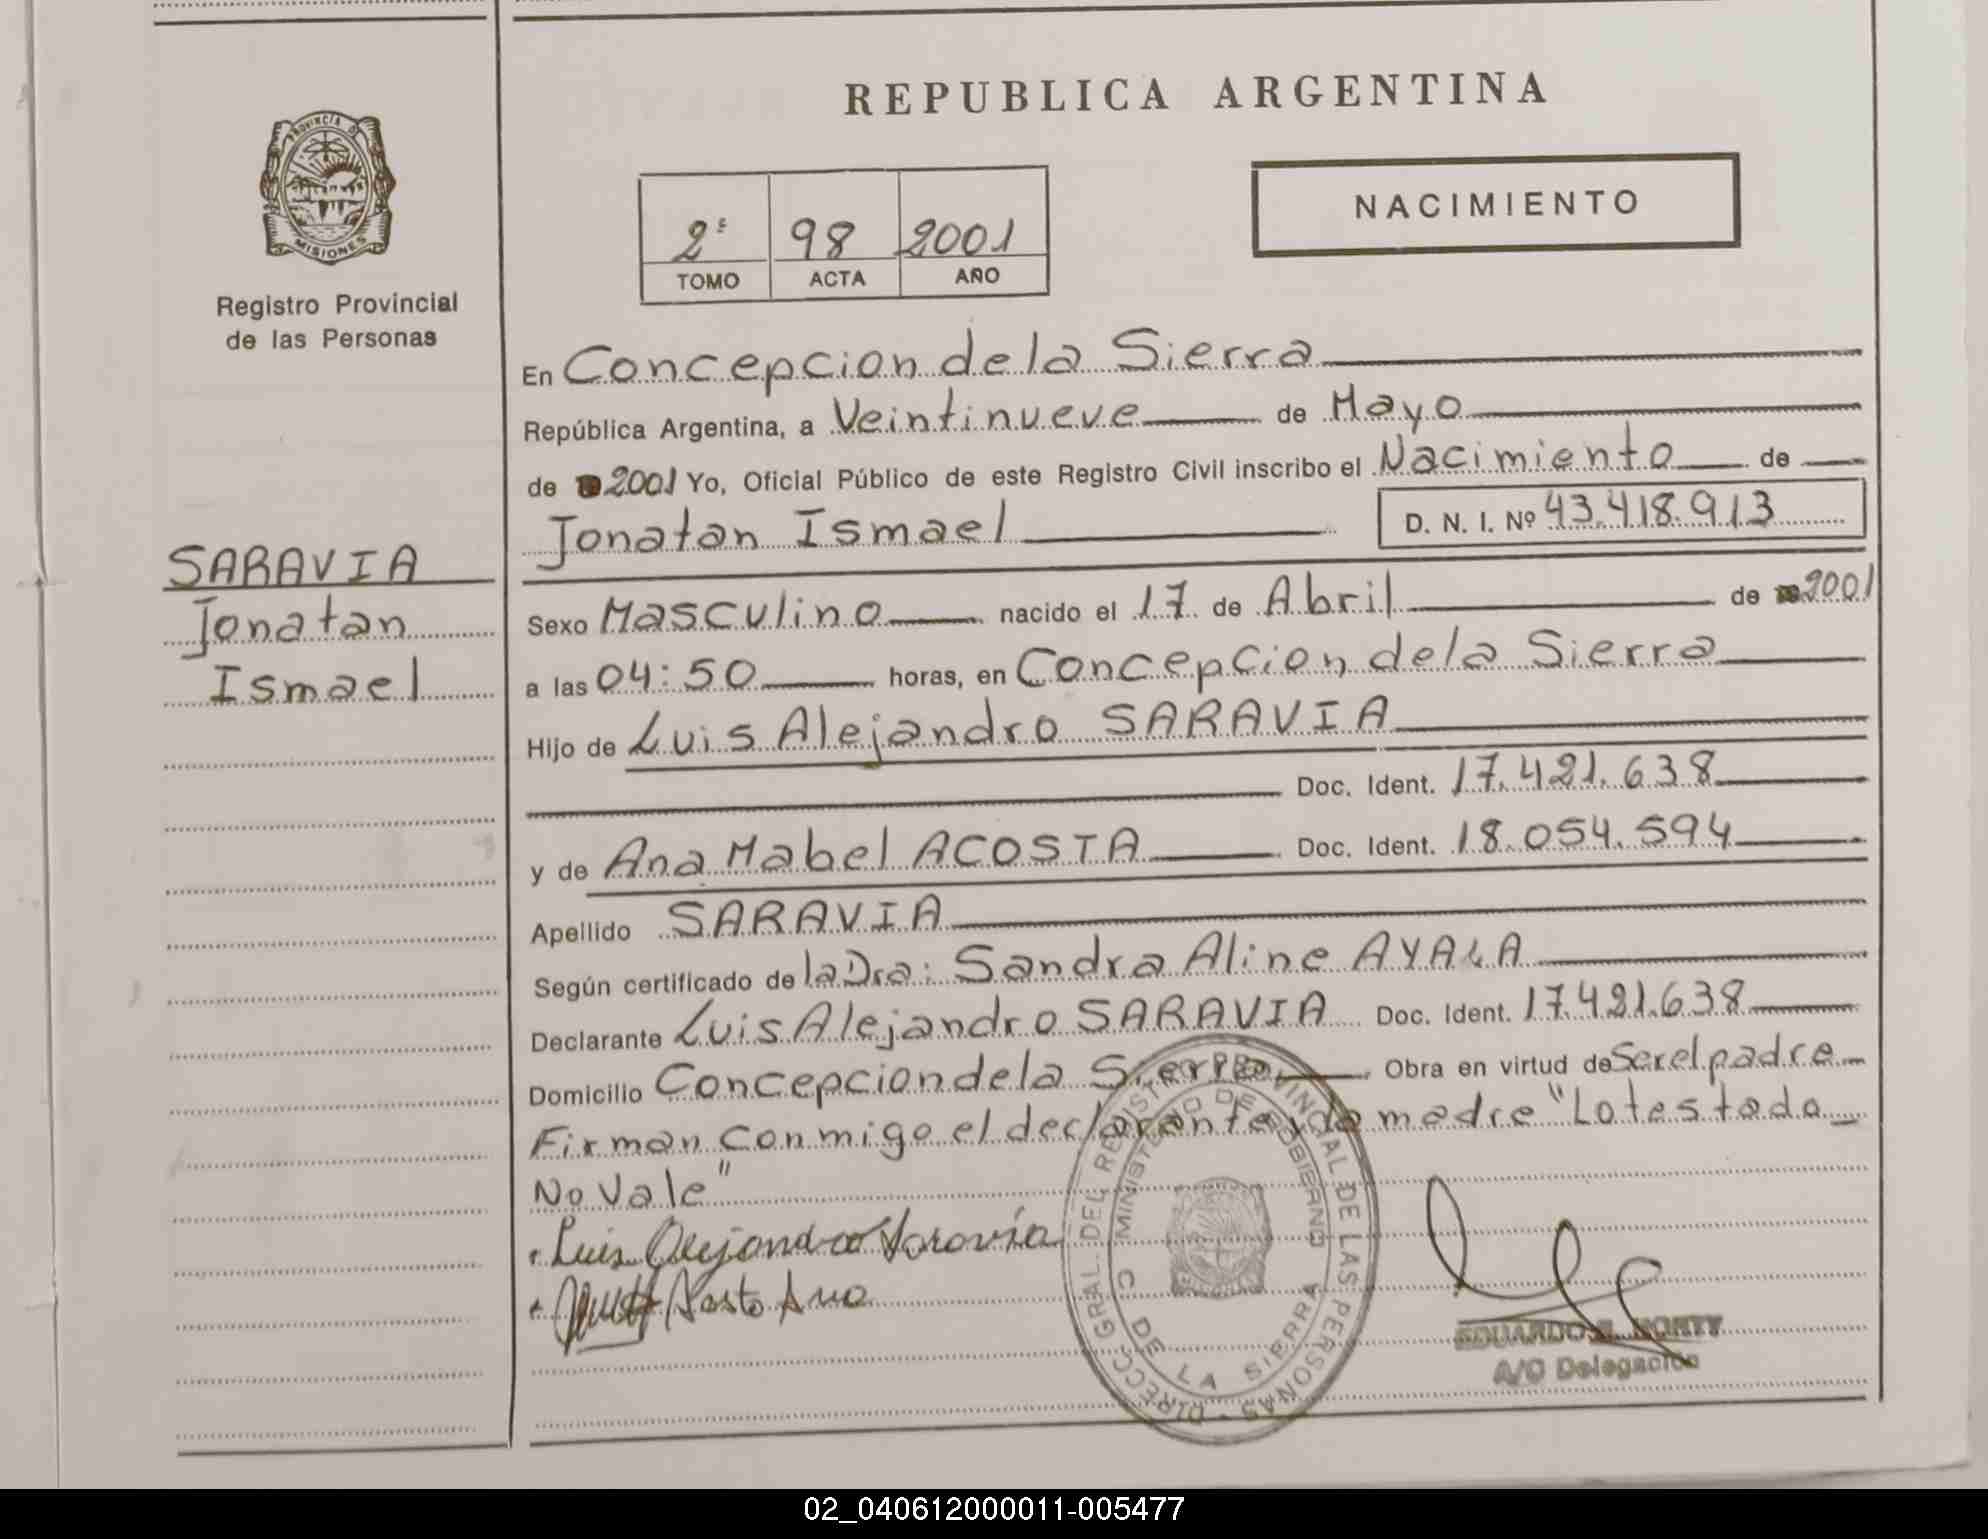 REPUBLICA ARGENTINA
PROVINCIA DE
MISIONES
Registro Provincial
de las Personas
2º 98 2001
TOMO ACTA AÑO
NACIMIENTO
SARAVIA
Jonatan
Ismael
En Concepcion de la Sierra
República Argentina, a Veintinueve de Mayo
de 2001 Yo, Oficial Público de este Registro Civil inscribo el Nacimiento de
Jonatan Ismael D. N. I. Nº 43.418.913
Sexo Masculino nacido el 17 de Abril de 2001
a las 04:50 horas, en Concepcion de la Sierra
Hijo de Luis Alejandro SARAVIA
Doc. Ident. 17.421.638
y de Ana Mabel ACOSTA Doc. Ident. 18.054.594
Apellido SARAVIA
Según certificado de la Dra: Sandra Aline AYALA
Declarante Luis Alejandro SARAVIA Doc. Ident. 17.421.638
Domicilio Concepcion de la Sierra Obra en virtud de Ser el padre
Firman conmigo el declarante y la madre "Lo testado
No Vale"
Luis Alejandro Saravia
Ana
DIRECC. GRAL. DEL REGISTRO PROVINCIAL DE LAS PERSONAS
MINISTERIO DE GOBIERNO
C DE LA SIERRA
EDUARDO
A/C Delegación
02_040612000011-005477